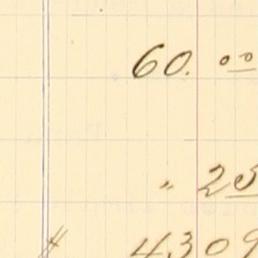 60.00
" 25
4309